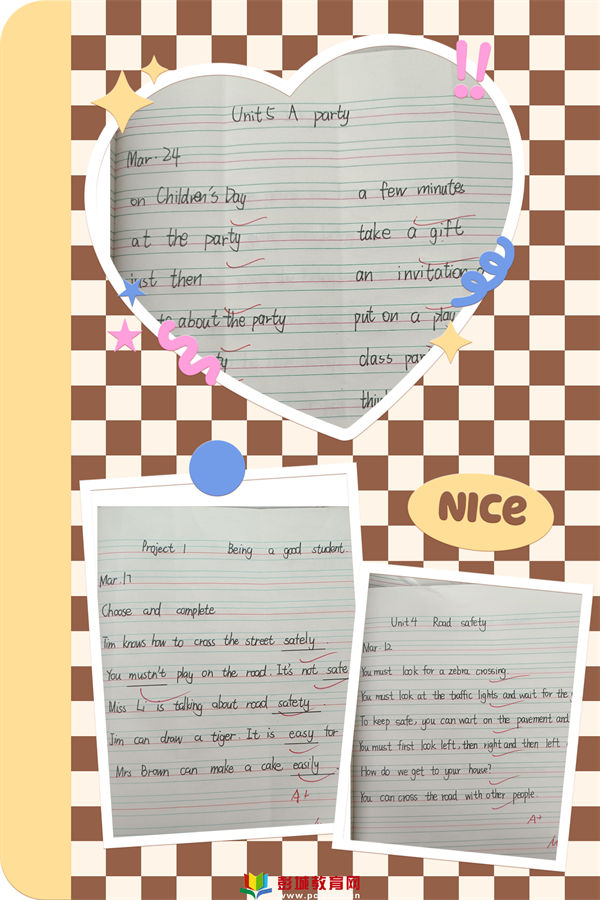 Unit 5 A party
Mar. 24
on Children's Day
a few minutes
at the party
take a gift
just then
an invitation
about the party
put on a play
class
Project 1 Being a good student.
Mar. 17
Choose and complete
Tim knows how to cross the street safely.
You mustn't play on the road. It's not safe
Miss Li is talking about road safety.
Jim can draw a tiger. It is easy for
Mrs Brown can make a cake easily
A+
NICE
Unit 4 Road safety
Mar. 12
You must look for a zebra crossing.
You must look at the traffic lights and wait for the
To keep safe, you can wait on the pavement and
You must first look left, then right and then left
How do we get to your house?
You can cross the road with other people.
A+
彭城教育网